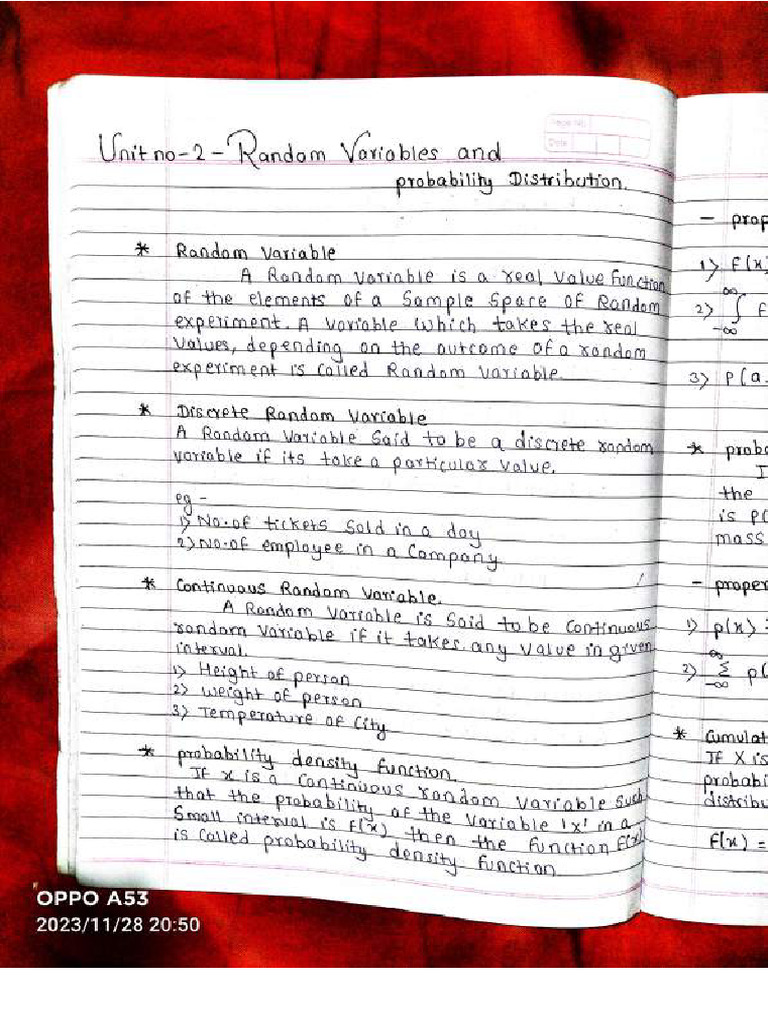 Page No
Date
Unit no-2- Random Variables and
probability Distribution.
* Random Variable
A Random variable is a real value function
of the elements of a Sample Space of Random
experiment. A variable which takes the real
values, depending on the outcome of a random
experiment is called Random variable.
* Discrete Random Variable
A Random Variable Said to be a discrete random
variable if its take a particular value.
eg -
1) No. of tickets sold in a day
2) No. of employee in a Company
* Continuous Random Variable.
A Random Variable is Said to be Continuous
random variable if it takes any value in given
interval.
1) Height of person
2) weight of person
3) Temperature of City
* probability density function.
If x is a continuous random variable such
that the probability of the variable 'x' in a
Small interval is f(x) then the function f(x)
is called probability density function
- prop
1) f(x)
2) ∫ f
∞
-∞
3) P(a
* proba
I
the
is p(
mass
- proper
1) p(x)
2) Σ p(
∞
-∞
* Cumulat
If X is
probabi
distribu
F(x) =
OPPO A53
2023/11/28 20:50